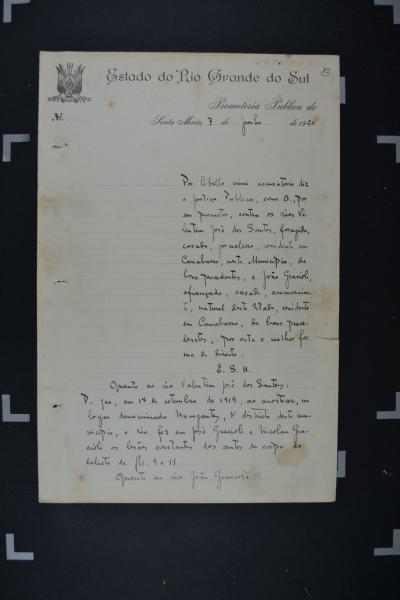 83
Estado do Rio Grande do Sul
Promotoria Publica de
Nº
Santa Maria, 7 de junho de 1920
Por libello crime accusatorio diz
a justiça Publica, como A., por
seu promotor, contra os réos Va-
lentim José dos Santos, foragido,
casado, jornaleiro, residente em
Canabarro, neste Municipio, de
bons precedentes, e João Gracioli,
afiançado, casado, commercian-
te, natural deste Estado, residente
em Canabarro, de bons prece-
dentes, por esta e melhor for-
ma de direito.
E. S. N.
Quanto ao réo Valentim José dos Santos:
P. que, em 14 de setembro de 1919, ao anoitecer, no
logar denominado 3º districto deste mu-
nicipio, o réo fez em José Gracioli e Nicolau Gra-
cioli as lesões constantes dos autos de corpo de
delicto de fls. 9 e 11.
Quanto ao réo João Gracioli: